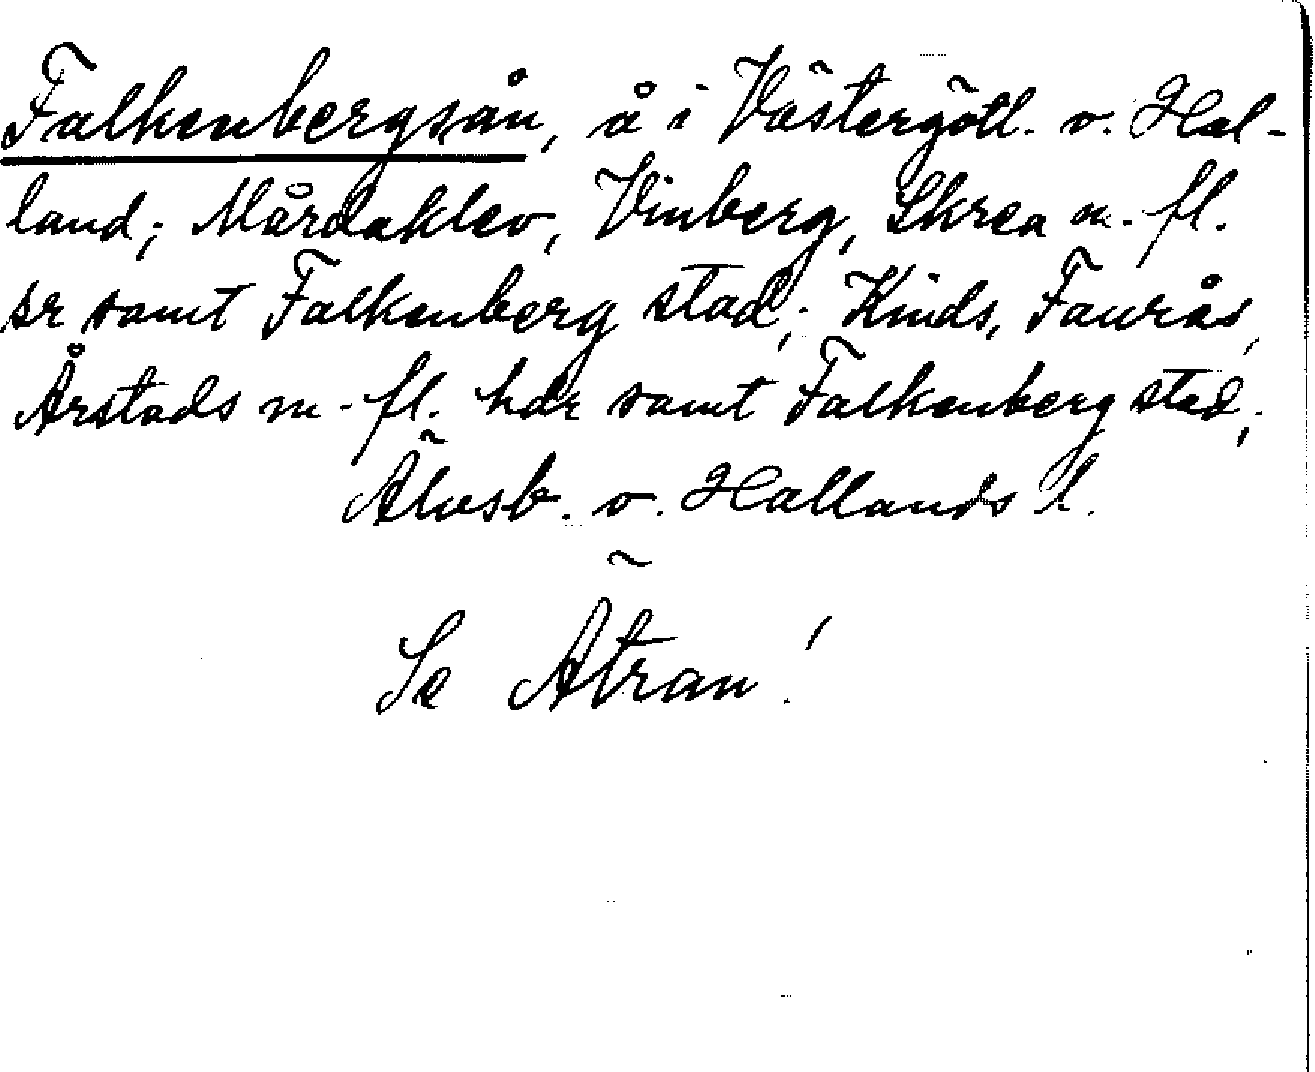 Falkenbergsån, å i Västergötl. o. Hal-
land; Mårdaklev, Vinberg, Skrea m. fl.
sr samt Falkenberg stad; Kinds, Faurås,
Årstads m. fl. hdr samt Falkenberg stad;
Älvsb. o. Hallands l.
Se Ätran!